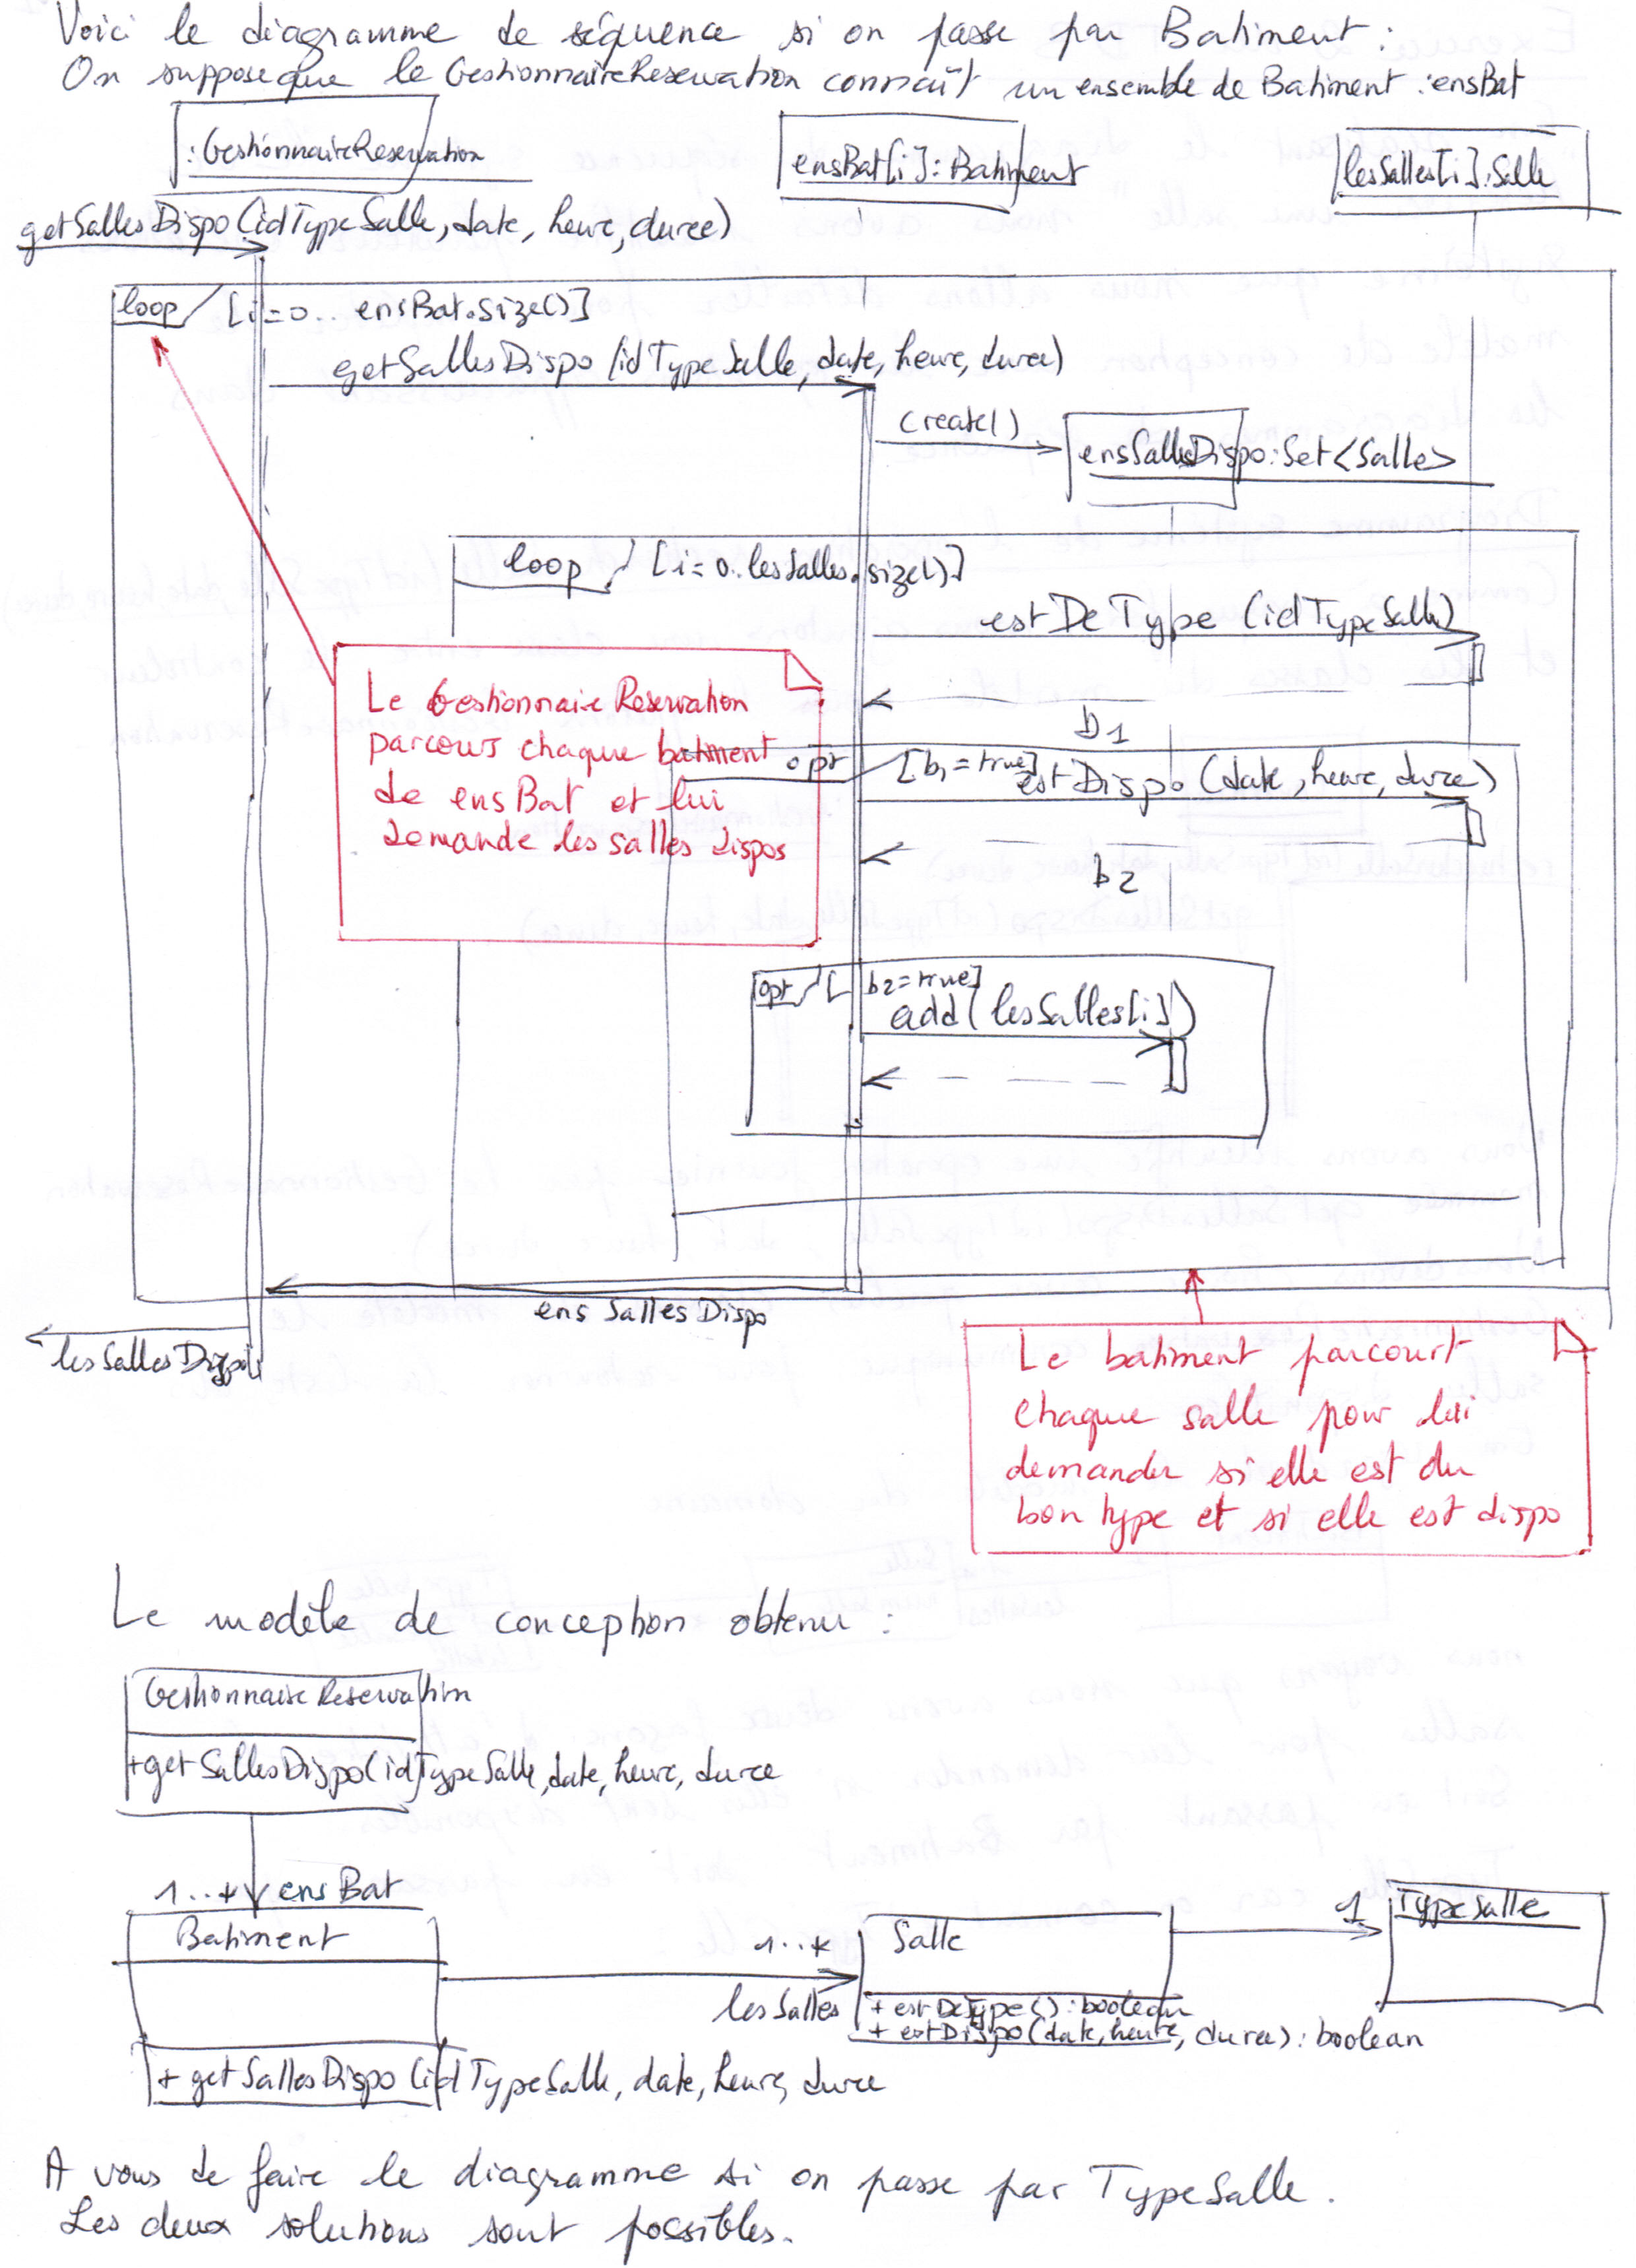 Voici le diagramme de séquence si on passe par Batiment :
On suppose que le GestionnaireReservation connaît un ensemble de Batiment : ensBat
: GestionnaireReservation
ensBat[i] : Batiment
lesSalles[i] : Salle
getSallesDispo (idTypeSalle, date, heure, duree)
loop [i=0.. ensBat.size()]
getSallesDispo (idTypeSalle, date, heure, duree)
create()
ensSallesDispo : Set<Salles>
loop [i=0..lesSalles.size()]
estDeType (idTypeSalle)
b1
opt [b1 = true]
estDispo (date, heure, duree)
b2
Le GestionnaireReservation
parcours chaque batiment
de ensBat et lui
demande les salles dispos
opt [ b2=true]
add(lesSalles[i])
ens Salles Dispo
les Salles Dispo
Le batiment parcourt
chaque salle pour lui
demander si elle est du
bon type et si elle est dispo
Le modèle de conception obtenu :
GestionnaireReservation
+getSallesDispo(idTypeSalle, date, heure, duree
1..* ensBat
Batiment
+ getSallesDispo (idTypeSalle, date, heure, duree
1..*
lesSalles
Salle
+ estDeType() : boolean
+ estDispo(date, heure, duree) : boolean
1
TypeSalle
A vous de faire le diagramme si on passe par TypeSalle.
Les deux solutions sont possibles.